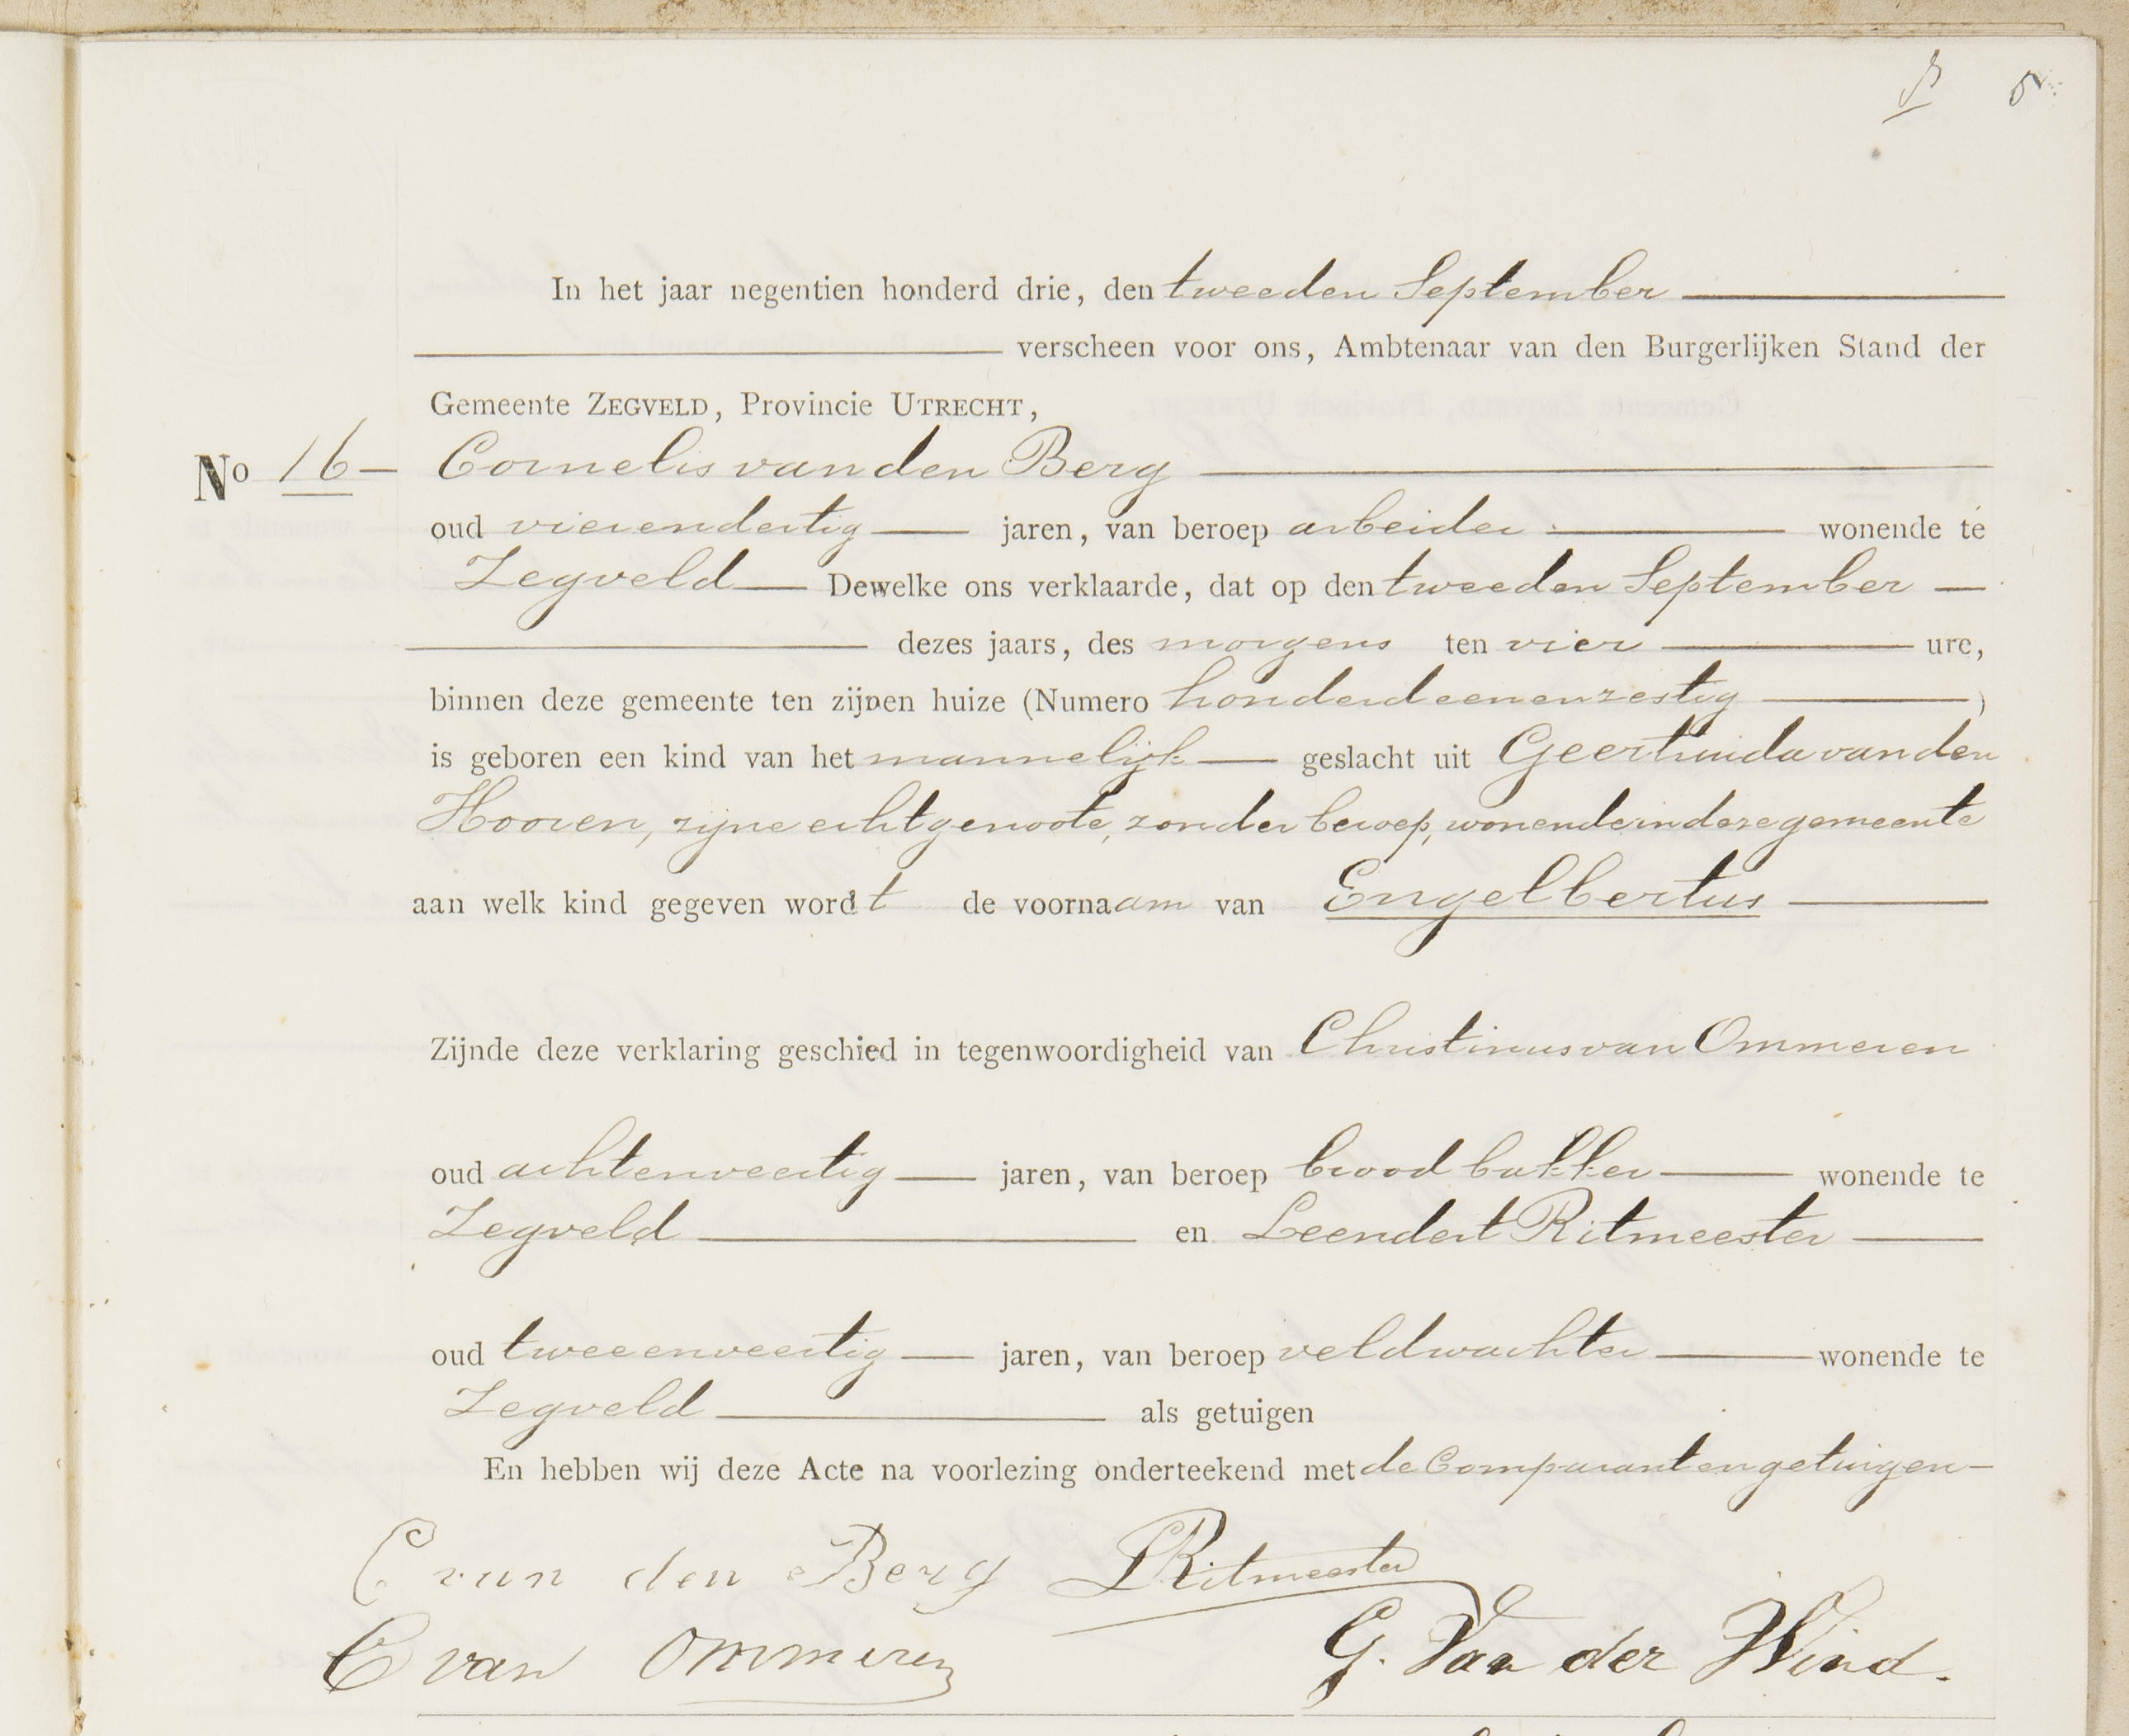 5
In het jaar negentien honderd drie, den tweeden September
verscheen voor ons, Ambtenaar van den Burgerlijken Stand der
Gemeente ZEGVELD, Provincie UTRECHT,
No 16 Cornelis van den Berg
oud vierendertig jaren, van beroep arbeider wonende te
Zegveld Dewelke ons verklaarde, dat op den tweeden September
dezes jaars, des morgens ten vier ure,
binnen deze gemeente ten zijnen huize (Numero honderdeenenzestig)
is geboren een kind van het mannelijk geslacht uit Geertruida van den
Hooren, zijne echtgenoote, zonder beroep, wonende in deze gemeente
aan welk kind gegeven wordt de voornaam van Engelbertus
Zijnde deze verklaring geschied in tegenwoordigheid van Christinus van Ommeren
oud achtenveertig jaren, van beroep broodbakker wonende te
Zegveld en Leendert Ritmeester
oud tweeenveertig jaren, van beroep veldwachter wonende te
Zegveld als getuigen
En hebben wij deze Acte na voorlezing onderteekend met de Comparant en getuigen
C van den Berg LRitmeester
C van Ommeren G. Van der Wind.